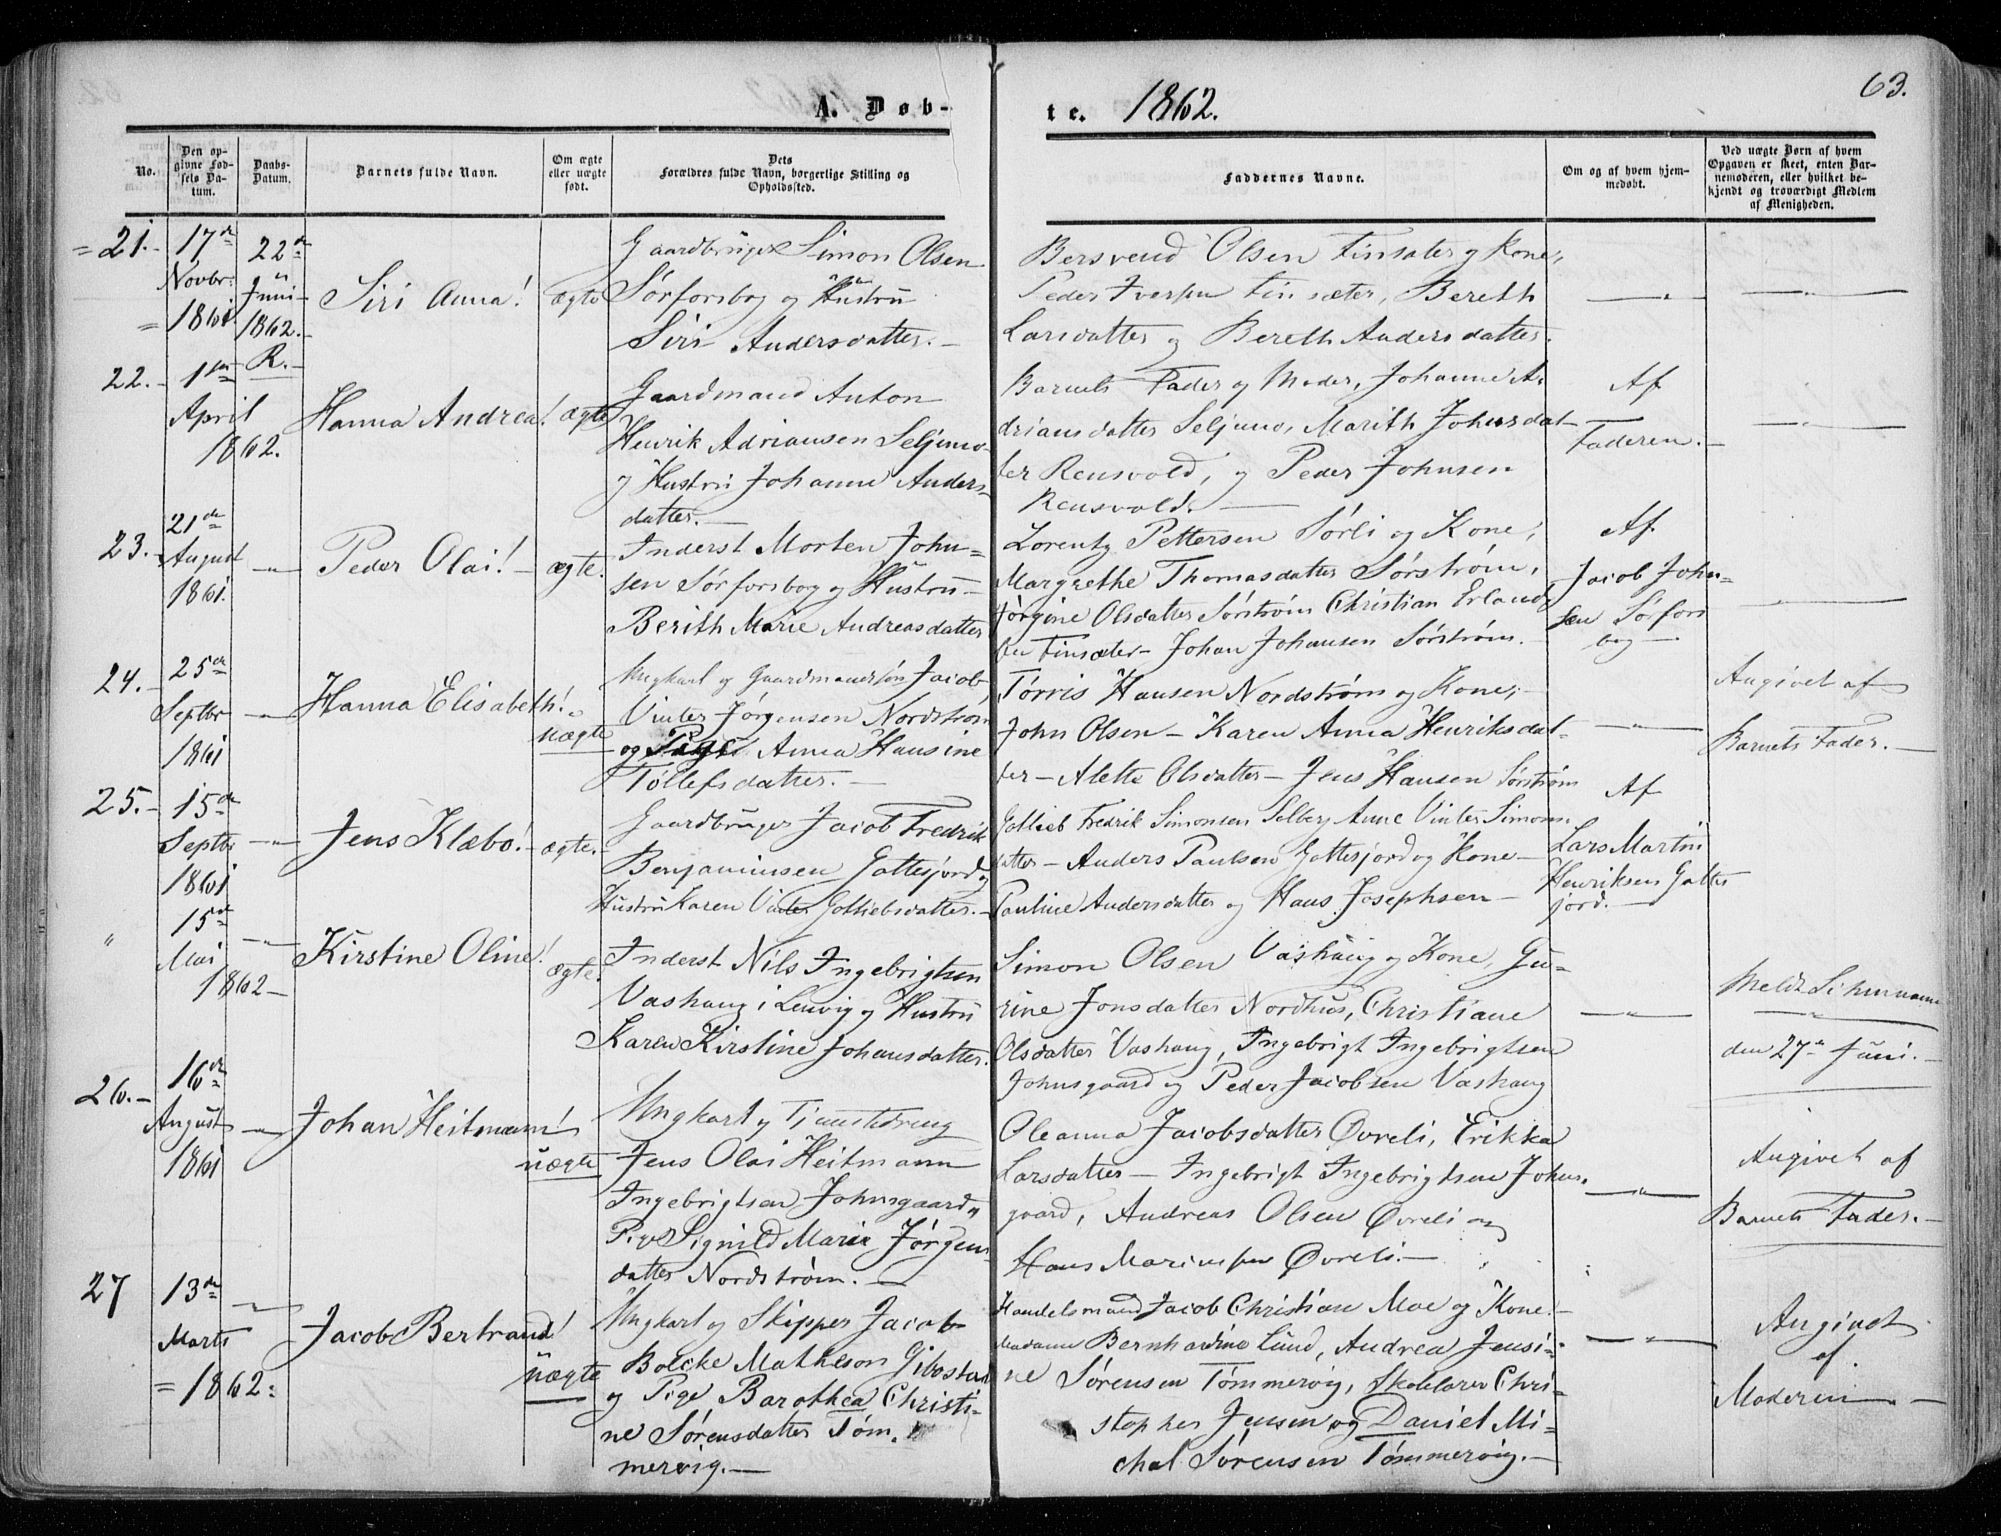 A. Døb-
te. 1862.
63.
No.
Den op-
givne Fød-
sels Da-
tum.
Daabs-
Datum.
Barnets fulde Navn.
Om ægte
eller uægte
født.
Dets
Forældres fulde Navn, borgerlige Stilling og
Opholdssted.
Faddernes Navne.
Om og af hvem hjem-
medøbt.
Ved uægte Børn af hvem
Opgaven er skeet, enten Bar-
nemoderen, eller hvilket be-
kjendt og troværdigt Medlem
af Menigheden.
= 21.-
17de
Novbr.
= 1861
22de
Juni
1862.-
R.-
Siri Anna!
ægte
Gaardbruger Simon Olsen
Sørforsbog og Hustru
Siri Andersdatter.-
Bersvend Olsen Finsæter og Kone,
Peder Iversen Finsæter, Bereth
Larsdatter og Bereth Andersdatter.
22.-
1ste
April
1862.
Hanna Andrea!
ægte
Gaardmand Anton
Henrik Adriansen Seljemo
og Hustru Johanna Anders-
datter.-
Barnets Fader og Moder, Johanne A-
driansdatter Seljemo, Marith Johnsdat-
ter Rensvold, og Peder Johnsen
Rensvold.-
Af
Faderen.-
23.-
21de
August
1861.
Peder Olai!-
ægte.
Inderst Morten John=
sen Sørforsbog og Hustru-
Berith Marie Andreasdatter
Lorentz Pettersen Sørli og Kone,
Margrethe Thomasdatter Sørstrøm,
Jørgine Olsdatter Sørstrøm Christian Erland-
sen Finsæter- Johan Johansen Sørstrøm.
Af
Jacob John=
sen Sørfors
bog
24.-
25de
Septbr
1861
Hanna Elisabeth!
uægte
Ungkarl og Gaardmandssøn Jacob
Vinter Jørgensen Nordstrøm
og Pige Anna Hansine
Tollefsdatter.-
Tørris Hansen Nordstrøm og Kone,-
John Olsen - Karen Anna Henriksdat-
ter - Alette Olsdatter - Jens Hansen Sørstrøm
Angivet af
Barnets Fader.-
25.-
15de
Septbr
1861
Jens Klæbo!-
ægte.-
Gaardbruger Jacob Fredrik
Benjaminsen Gottesjord og
Hustru Karen Vinter Gottliebsdatter.-
Gottlieb Fredrik Simonsen Solberg Anne Vinter Simons-
datter - Anders Paulsen Gottesjord og Kone-
Pauline Andersdatter og Hans Josephsen-
Af
Lars Martin
Henriksen Gottes
jord.-
"
15de
Mai
1862-
Kirstine Oline!
ægte.
Inderst Nils Ingebrigtsen
Vashaug i Lenvig og Hustru
Karen Kirstine Johansdatter.
Simon Olsen Vashaug og Kone, Gu-
rine Jonsdatter Nordhus, Christiane
Olsdatter Vashaug, Ingebrigt Ingebrigtsen
Johnsgaard og Peder Jacobsen Vashaug
Meldt
den 27de Juni.-
26.-
16de
August
1861
Johan Heitmann!
uægte
Ungkarl og Tjenestedreng
Jens Olai Heitmann
Ingebrigtsen Johnsgaard og
Pige Signild Marie Jørgens
datter Nordstrøm.-
Oleanna Jacobsdatter Øvreli, Erikka
Larsdatter - Ingebrigt Ingebrigtsen Johns-
gaard, Andreas Olsen Øvreli og
Hans Mariusen Øvreli.-
Angivet af
Barnets Fader.-
27
13de
Marts
= 1862:
Jacob Bertrand!
uægte
Ungkarl og Skipper Jacob
Bolcke Matheson Gibostad
og Pige Barothea Christi-
ne Sørensdatter Tøm.
mervig.-
Handelsmand Jacob Christian Moe og Kone.-
Madame Bernhardine Lund, Andrea Jensi-
ne Sørensen Tømmervig, Skolelærer Chri-
stopher Jensen og Daniel Mi=
chal Sørensen Tømmervig.-
Angivet
af
Moderen.-